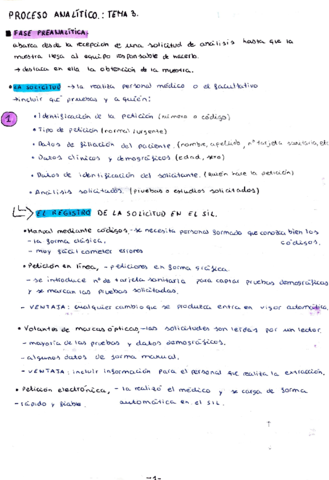 PROCESO ANALÍTICO.: TEMA 3.
FASE PREANALÍTICA:
abarca desde la recepción de una solicitud de análisis hasta que la
muestra llega al equipo responsable de hacerlo.
→ destaca en ella la obtención de la muestra.
• LA SOLICITUD → la realiza personal médico o el facultativo
→ incluir qué pruebas y a quién:
1
• Identificación de la petición (número o código)
• Tipo de petición (normal/urgente)
• Datos de filiación del paciente (nombre, apellido, nº tarjeta sanitaria, etc
• Datos clínicos y demográficos (edad, sexo)
• Datos de identificación del solicitante. (quién hace la petición)
• Análisis solicitados (pruebas o estudios solicitados)
EL REGISTRO DE LA SOLICITUD EN EL SIL.
• Manual mediante códigos, - se necesita personal formado que conozca bien los
- la forma clásica. códigos.
- muy fácil cometer errores
• Petición en línea, - peticiones en forma gráfica.
- se introduce nº de tarjeta sanitaria para captar pruebas demográficas
y se marcan las pruebas solicitadas.
- VENTAJA: cualquier cambio que se produzca entra en vigor automática.
• Volantes de marcas ópticas, - las solicitudes son leídas por un lector.
- mayoría de las pruebas y datos demográficos.
- algunos datos de forma manual.
- VENTAJA: incluir información para el personal que realiza la extracción.
• Petición electrónica, - la realizó el médico y se carga de forma
- rápido y fiable. automática en el SIL.
-1-